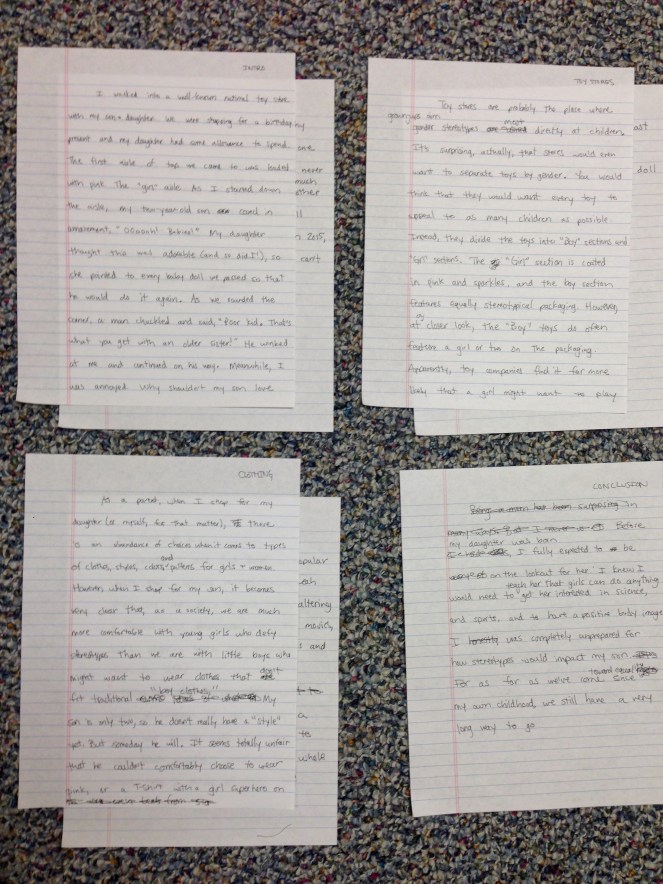 INTRO
I walked into a well-known national toy store
with my son + daughter. We were shopping for a birthday
present and my daughter had some allowance to spend.
The first aisle of toys we came to was loaded
with pink. The "girl" aisle. As I started down
the aisle, my two-year-old son cooed in
amazement, "Ooooh! Babies!" My daughter
thought this was adorable (and so did I!), so
she pointed to every baby doll we passed so that
he would do it again. As we rounded the
corner, a man chuckled and said, "Poor kid. That's
what you get with an older sister!" He winked
at me and continued on his way. Meanwhile, I
was annoyed. Why shouldn't my son love
one
never
much
other
2015,
can't
TOY STORES
Toy stores are probably the place where
grown ups aim most
gender stereotypes directly at children.
It's surprising, actually, that stores would even
want to separate toys by gender. You would
think that they would want every toy to
appeal to as many children as possible.
Instead, they divide the toys into "Boy" sections and
"Girl" sections. The "Girl" section is coated
in pink and sparkles, and the boy section
features equally stereotypical packaging. However,
at closer look, the "Boy" toys do often
feature a girl or two on the packaging.
Apparently, toy companies find it far more
likely that a girl might want to play
doll
CLOTHING
As a parent, when I shop for my
daughter (or myself, for that matter), there
is an abundance of choices when it comes to types
of clothes, styles, colors, and patterns for girls + women.
However, when I shop for my son, it becomes
very clear that, as a society, we are much
more comfortable with young girls who defy
stereotypes than we are with little boys who
might want to wear clothes that don't
fit traditional "boy clothes." My
son is only two, so he doesn't really have a "style"
yet. But someday he will. It seems totally unfair
that he couldn't comfortably choose to wear
pink, or a T-shirt with a girl superhero on
altering
movies,
and
a
to
whole
CONCLUSION
Being a mom has been surprising in
many ways. Before
my daughter was born
I fully expected to be
on the lookout for her. I knew I
would need to teach her that girls can do anything,
get her interested in science,
and sports, and to have a positive body image.
I was completely unprepared for
how stereotypes would impact my son
For as far as we've come toward equal since
my own childhood, we still have a very
long way to go.